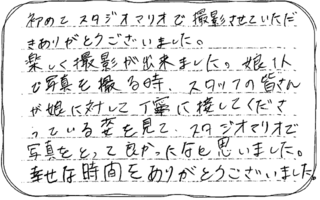 初めて、スタジオマリオで撮影させていただ
きありがとうございました。
楽しく撮影が出来ました。娘1人
で写真を撮る時、スタッフの皆さん
が娘に対して丁寧に接してくださ
っている姿を見て、スタジオマリオで
写真をとって良かったなと思いました。
幸せな時間をありがとうございました。